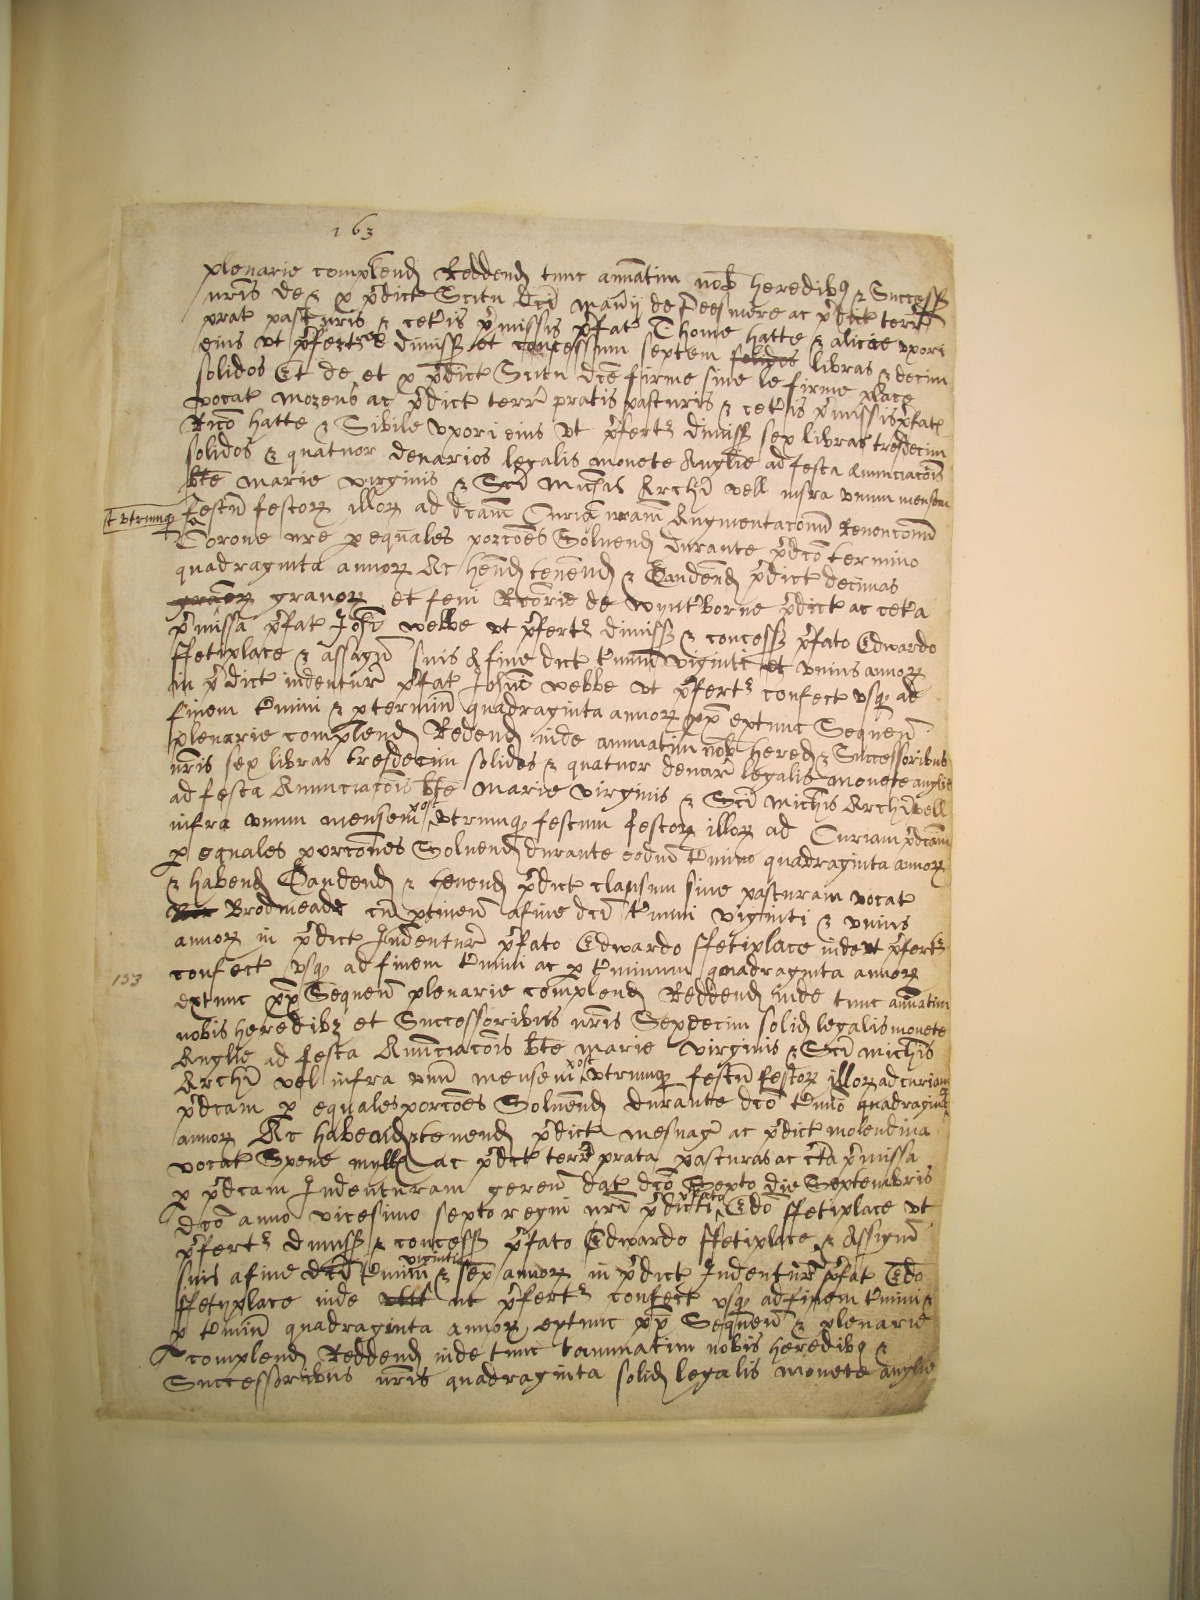 163
plenarie complend Reddend tunc annatim nob heredibq & Success
nris de & p pdict Scitu dci manij de Peesmere ac pdict terr
prat pasturis & cetis pmissis pfat Thome hatte & alicie uxori
eius ut pfertr dimiss et concessum septem solidos libras & decim
solidos Et de et p pdict Scitu dce firme sive le firme place
vocat mozens ac pdict terr pratis pasturis & cetis pmissis pfat
Rico hatte & Sibile uxori eius ut pfertr dimiss sex libras tresdecim
solidos & quatuor denarios legalis monete Anglie ad festa Annunciacois
bte marie virginis & Sci Michis Archi vell infra unum mensem
st utrumq
festu festor illor ad dcam Curia nram Augmentaconu Revenconu
Corone nre p equales porcoes Solvend durante pdco termino
quadraginta annor Ac hend tenend & Gaudend pdict decimas
granor granor et feni Rcorie de Wyntborne pdict ac ceta
pmissa pfat Johi webbe ut pfertr dimiss & concess pfato Edwardo
ffetiplace & assign suis A fine dict tmini viginti et unius annor
in pdict indentur pfat Johne webbe ut pfertr confect usq ad
finem tmini & p terminu quadraginta annor px extunc Sequen
plenarie complend Redend inde annuatim nob hered & Successoribus
nris sex libras tresdecim solidos & quatuor denar legalis monete anglie
ad festa Annunciacois bte Marie virginis & Sci Michis Archi vell
infra unum mensem post utrumq festum festor illor ad Curiam pdcam
p equales porcones Solvend durante eodm tmino quadraginta annor
& habend Gaudend & tenend pdict clausum sive pasturam vocat
Bro Brodmeade cu ptinen a fine dci tmini viginti & unius
annor in pdict Indentur pfato Edwardo ffetiplace inde ut pfertr
153
confect usq ad finem tmini ac p tminum quadraginta annor
extunc px Sequen plenarie complend Reddend inde tunc annatim
nobis heredibz et Successoribus nris Sexdecim solid legalis monete
Anglie ad festa Annunciacois bte marie virginis & Sci michis
Archi vel infra unu mensem post utrumq festu festor illor ad curiam
pdcam p equales porcoes Solvend durante dco tmio quadragint
annor Ac habend & tenend pdict mesuag ac pdict molendina
vocat Spene mylle ac pdct terr prata pasturas ac cta pmissa
p pdcam Indenturam geren dat dco Septo die Septembris
dco anno vicesimo septo regni nri pdicti pfato Edo ffetiplace ut
pfertr dimiss & concess pfato Edwardo ffetiplace & Assign
suis a fine dci tmini viginti & sex annor in pdict Indentur pfat Edo
ffetyplace inde ut pfertr confect usq ad finem tmini &
p tmin quadraginta annor extunc px Sequen & plenarie
complend Reddend inde tunc tannatim nobis heredibq &
Successoribus nris quadraginta solid legalis monete anglie